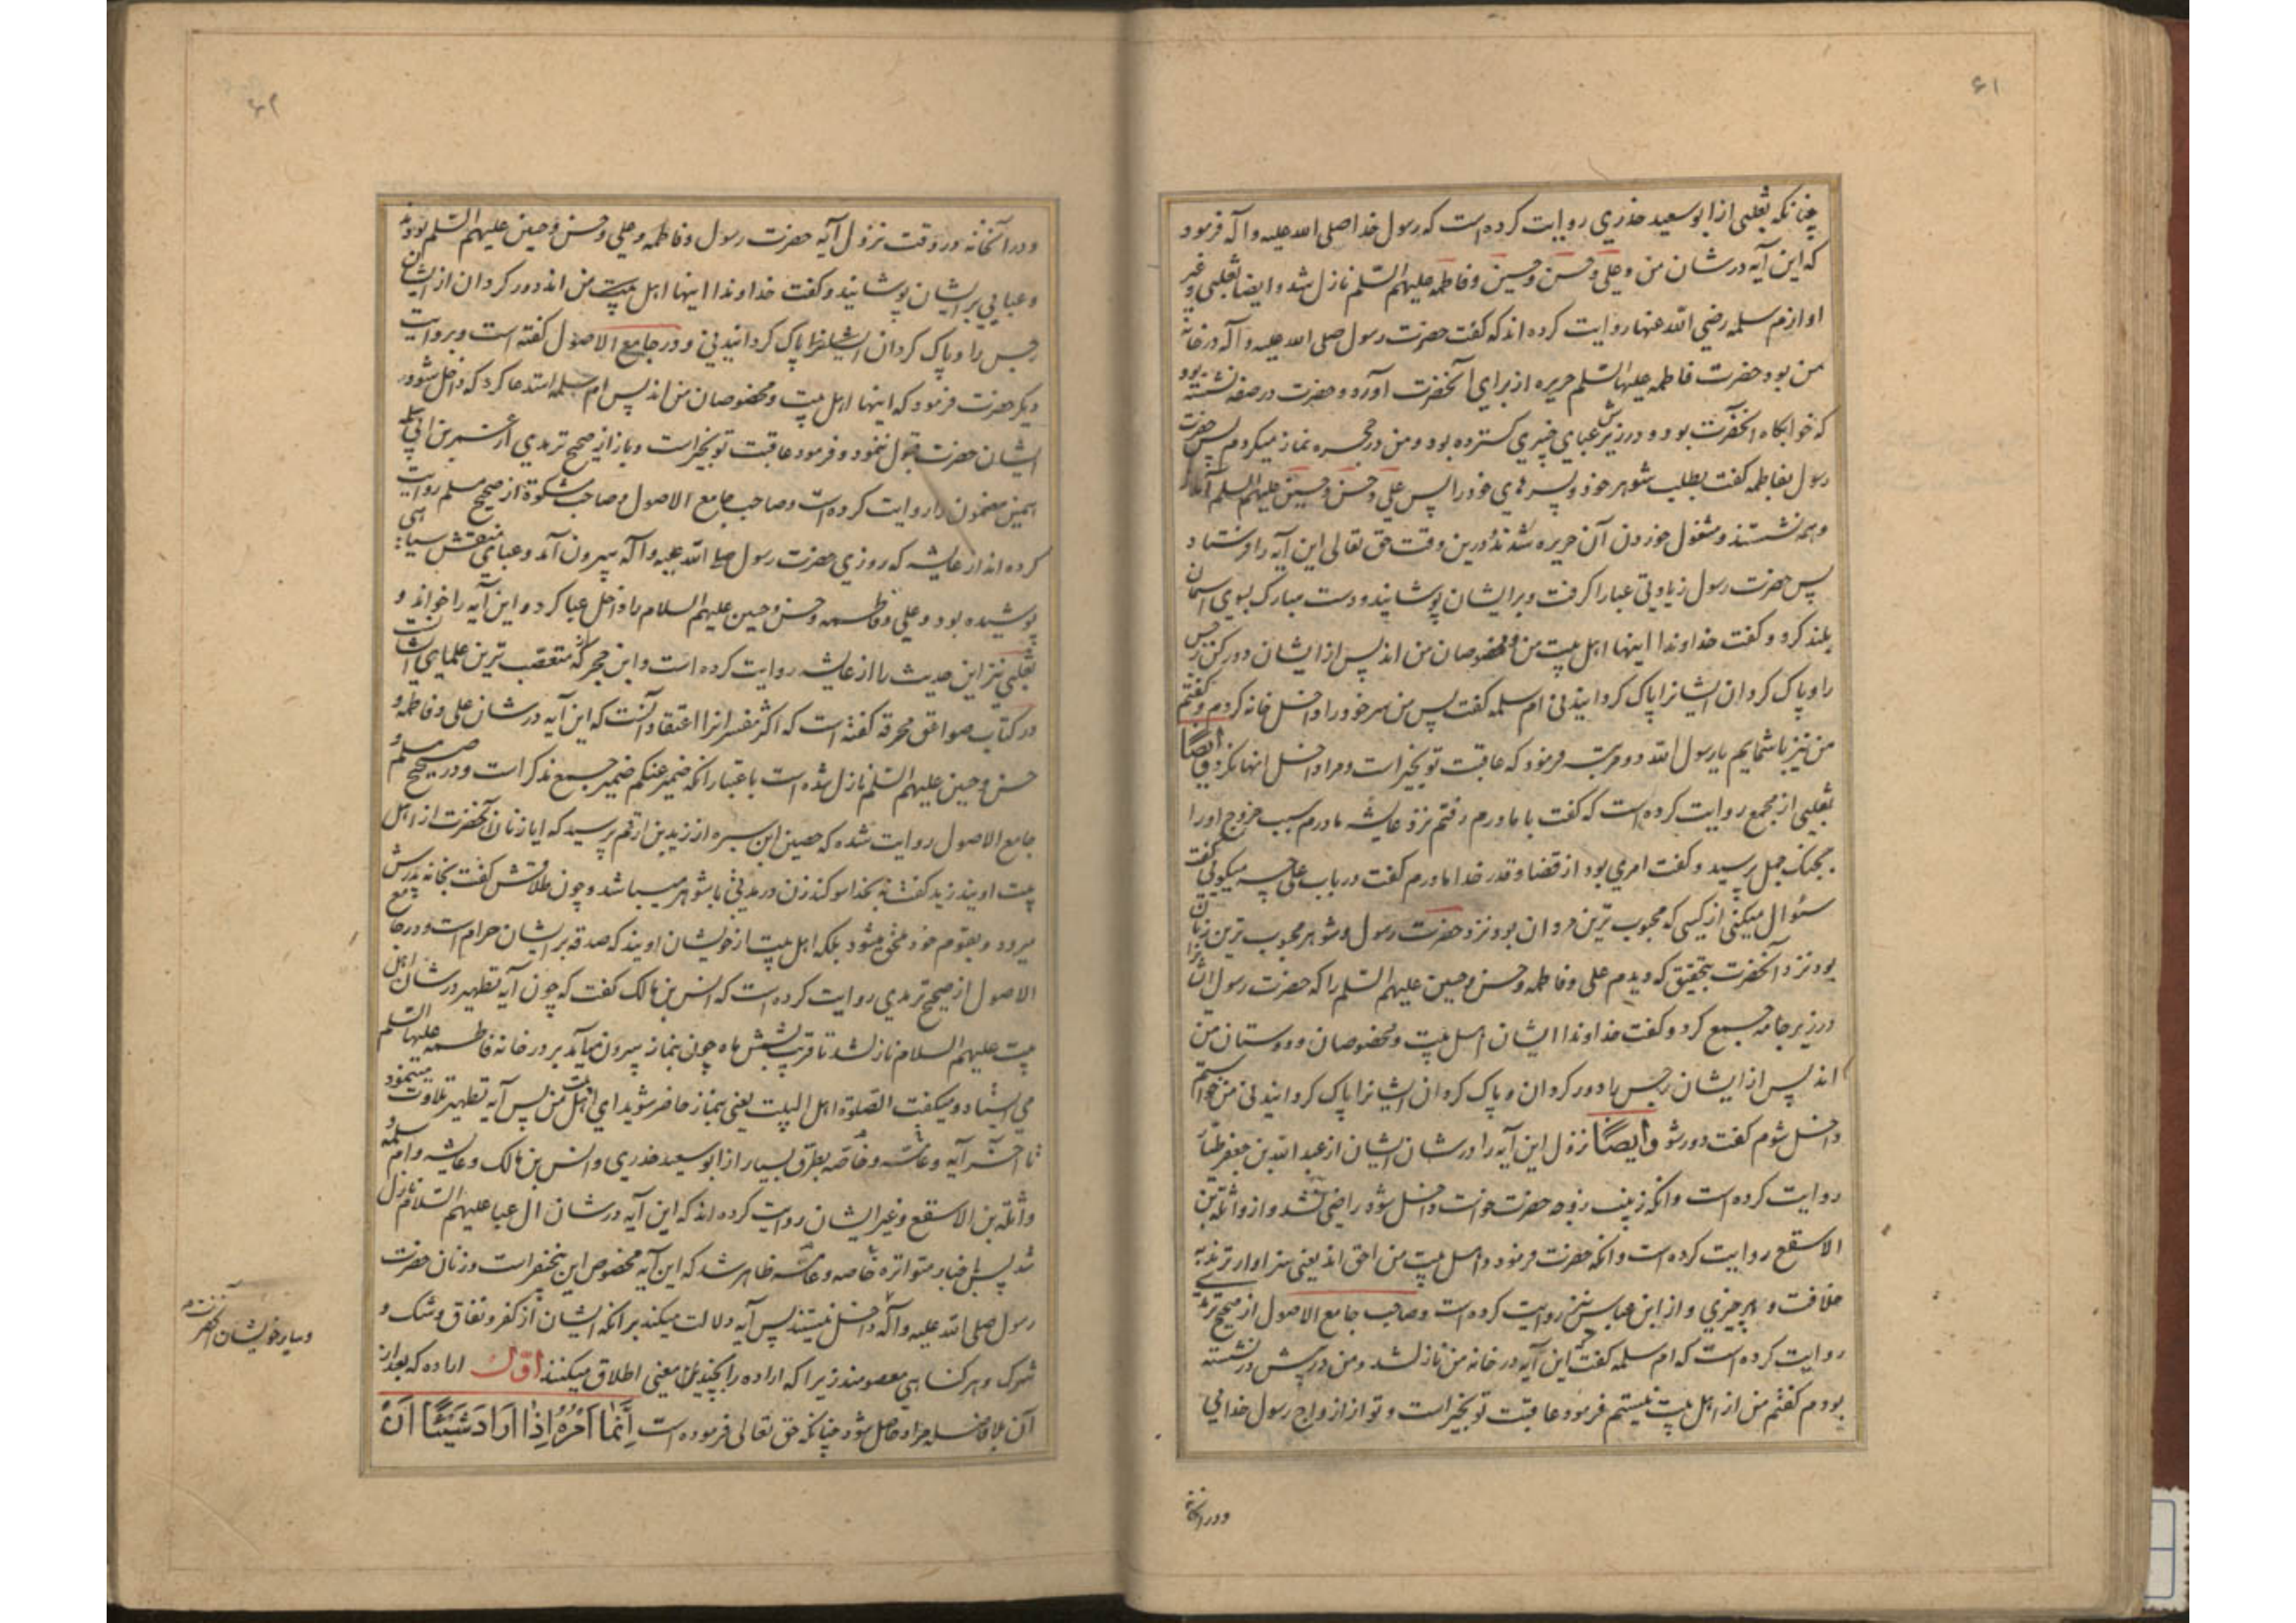 ۶۱
چنانکه ثعلبی از ابو سعید خذری روایت کرده است که رسول خدا صلی الله علیه و آله فرمود
که این آیه در شان من و علی و حسن و حسین و فاطمه علیهم السلم نازل شد و ایضا ثعلبی و غیر
او از ام سلمه رضی الله عنها روایت کرده اند که گفت حضرت رسول صلی الله علیه و آله در خانه
من بود حضرت فاطمه علیها السلم حریره از برای آنحضرت آورد و حضرت در صفه نشسته بود
که خوابگاه آنحضرت بود و در زیرش عبای خیبری گسترده بود و من در حجره نماز میکردم پس حضرت
رسول بفاطمه گفت بطلب شوهر خود و پسرهای خود را پس علی و حسن و حسین علیهم السلم آمدند
و همه نشستند و مشغول خوردن آن حریره شدند در این وقت حق تعالی این آیه را فرستاد
پس حضرت رسول زیادتی عبا را گرفت و بر ایشان پوشانید و دست مبارک بسوی آسمان
بلند کرد و گفت خداوندا اینها اهل بیت من و مخصوصان من اند پس از ایشان دور کن رجس
را و پاک گردان ایشانرا پاک گردانیدنی ام سلمه گفت پس من سر خود را داخل خانه کردم و گفتم
من نیز با شمایم یا رسول الله دو مرتبه فرمود که عاقبت تو بخیر است و مرا داخل انها نکرد و ایضا
ثعلبی از مجمع روایت کرده است که گفت با مادرم رفتم نزد عایشه مادرم سبب خروج او را
بجنک جمل پرسید و گفت امری بود از قضا و قدر خدا مادرم گفت در باب علی چه میگوئی گفت
سئوال میکنی از کسی که محبوب ترین مردان بود نزد حضرت رسول و شوهر محبوب ترین زنان
بود نزد آنحضرت بتحقیق که دیدم علی و فاطمه و حسن و حسین علیهم السلم را که حضرت رسول ایشانرا
در زیر جامه جمع کرد و گفت خداوندا ایشان اهل بیت و مخصوصان و دوستان من
اند پس از ایشان رجس را دور گردان و پاک گردان ایشانرا پاک گردانیدنی من خواستم
داخل شوم گفت دور شو و ایضا نزول این آیه را در شان ایشان از عبد الله بن جعفر طیار
روایت کرده است و انکه زینب زوجه حضرت خواست داخل شود راضی نشد و از واثلة بن
الاسقع روایت کرده است و انکه حضرت فرمود و اهل بیت من احق اند یعنی سزاوارترند به
خلافت و بهر چیزی و از ابن عباس نیز روایت کرده است و صاحب جامع الاصول از صحیح ترمذی
روایت کرده است که ام سلمه گفت که این آیه در خانه من نازل شد و من در پیش در نشسته
بودم گفتم من از اهل بیت نیستم فرمود عاقبت تو بخیر است و تو از ازواج رسول خدایی
و در انخانه
۶۲
و در آنخانه در وقت نزول آیه حضرت رسول و فاطمه و علی و حسن و حسین علیهم السلم بودند
و عبایی بر ایشان پوشانید و گفت خداوندا اینها اهل بیت من اند دور گردان از ایشان
رجس را و پاک گردان ایشانرا پاک گردانیدنی و در جامع الاصول گفته است و بروایت
دیگر حضرت فرمود که اینها اهل بیت و مخصوصان من اند پس ام سلمه استدعا کرد که داخل شود در
ایشان حضرت قبول ننمود و فرمود عاقبت تو بخیر است و باز از صحیح ترمذی از عمر بن ابی سلمه
همین مضمون را روایت کرده است و صاحب جامع الاصول و صاحب مشکوة از صحیح مسلم روایت
کرده اند از عایشه که روزی حضرت رسول صلی الله علیه و آله بیرون آمد و عبای منقش سیاهی
پوشیده بود و علی و فاطمه و حسن و حسین علیهم السلام را داخل عبا کرد و این آیه را خواند و
ثعلبی نیز این حدیث را از عایشه روایت کرده است و ابن حجر که متعصب ترین علمای ایشانست
در کتاب صواعق محرقه گفته است که اکثر مفسرانرا اعتقاد آنست که این آیه در شان علی و فاطمه و
حسن و حسین علیهم السلم نازل شده است باعتبار انکه ضمیر عنکم ضمیر جمع مذکر است و در صحیح مسلم و
جامع الاصول روایت شده که حصین ابن سبره از زید بن ارقم پرسید که ایا زنان آنحضرت از اهل
بیت اویند زید گفت نه بخدا سوکند زن در مدتی با شوهر میباشد و چون طلاقش گفت بخانه پدرش
میرود و بقوم خود ملحق میشود بلکه اهل بیت از خویشان اویند که صدقه بر ایشان حرام است و در جامع
الاصول از صحیح ترمذی روایت کرده است که انس بن مالک گفت که چون آیه تطهیر در شان اهل
بیت علیهم السلام نازل شد تا قریب بشش ماه چون بنماز بیرون میآمد بر در خانه فاطمه علیها السلم
می ایستاد و میگفت الصلوة اهل البیت یعنی بنماز حاضر شوید ای اهل بیت من پس آیه تطهیر تلاوت مینمود
تا آخر آیه و عامه و خاصه بطرق بسیار از ابو سعید خذری و انس بن مالک و عایشه و ام سلمه و
واثلة بن الاسقع و غیر ایشان روایت کرده اند که این آیه در شان ال عبا علیهم السلام نازل
شد پس باخبار متواتره خاصه و عامه ظاهر شد که این آیه مخصوص این پنج نفر است و زنان حضرت
رسول صلی الله علیه و آله داخل نیستند پس آیه دلالت میکند بر انکه ایشان از کفر و نفاق و شک و
شرک و هر گناهی معصومند زیرا که اراده را بچندین معنی اطلاق میکنند اول اراده که بعد از
آن بلا فاصله مراد حاصل شود چنانکه حق تعالی فرموده است اِنَّمَا اَمْرُهُ اِذَا اَرَادَ شَيْئًا اَنْ
و سایر خویشان آنحضرت